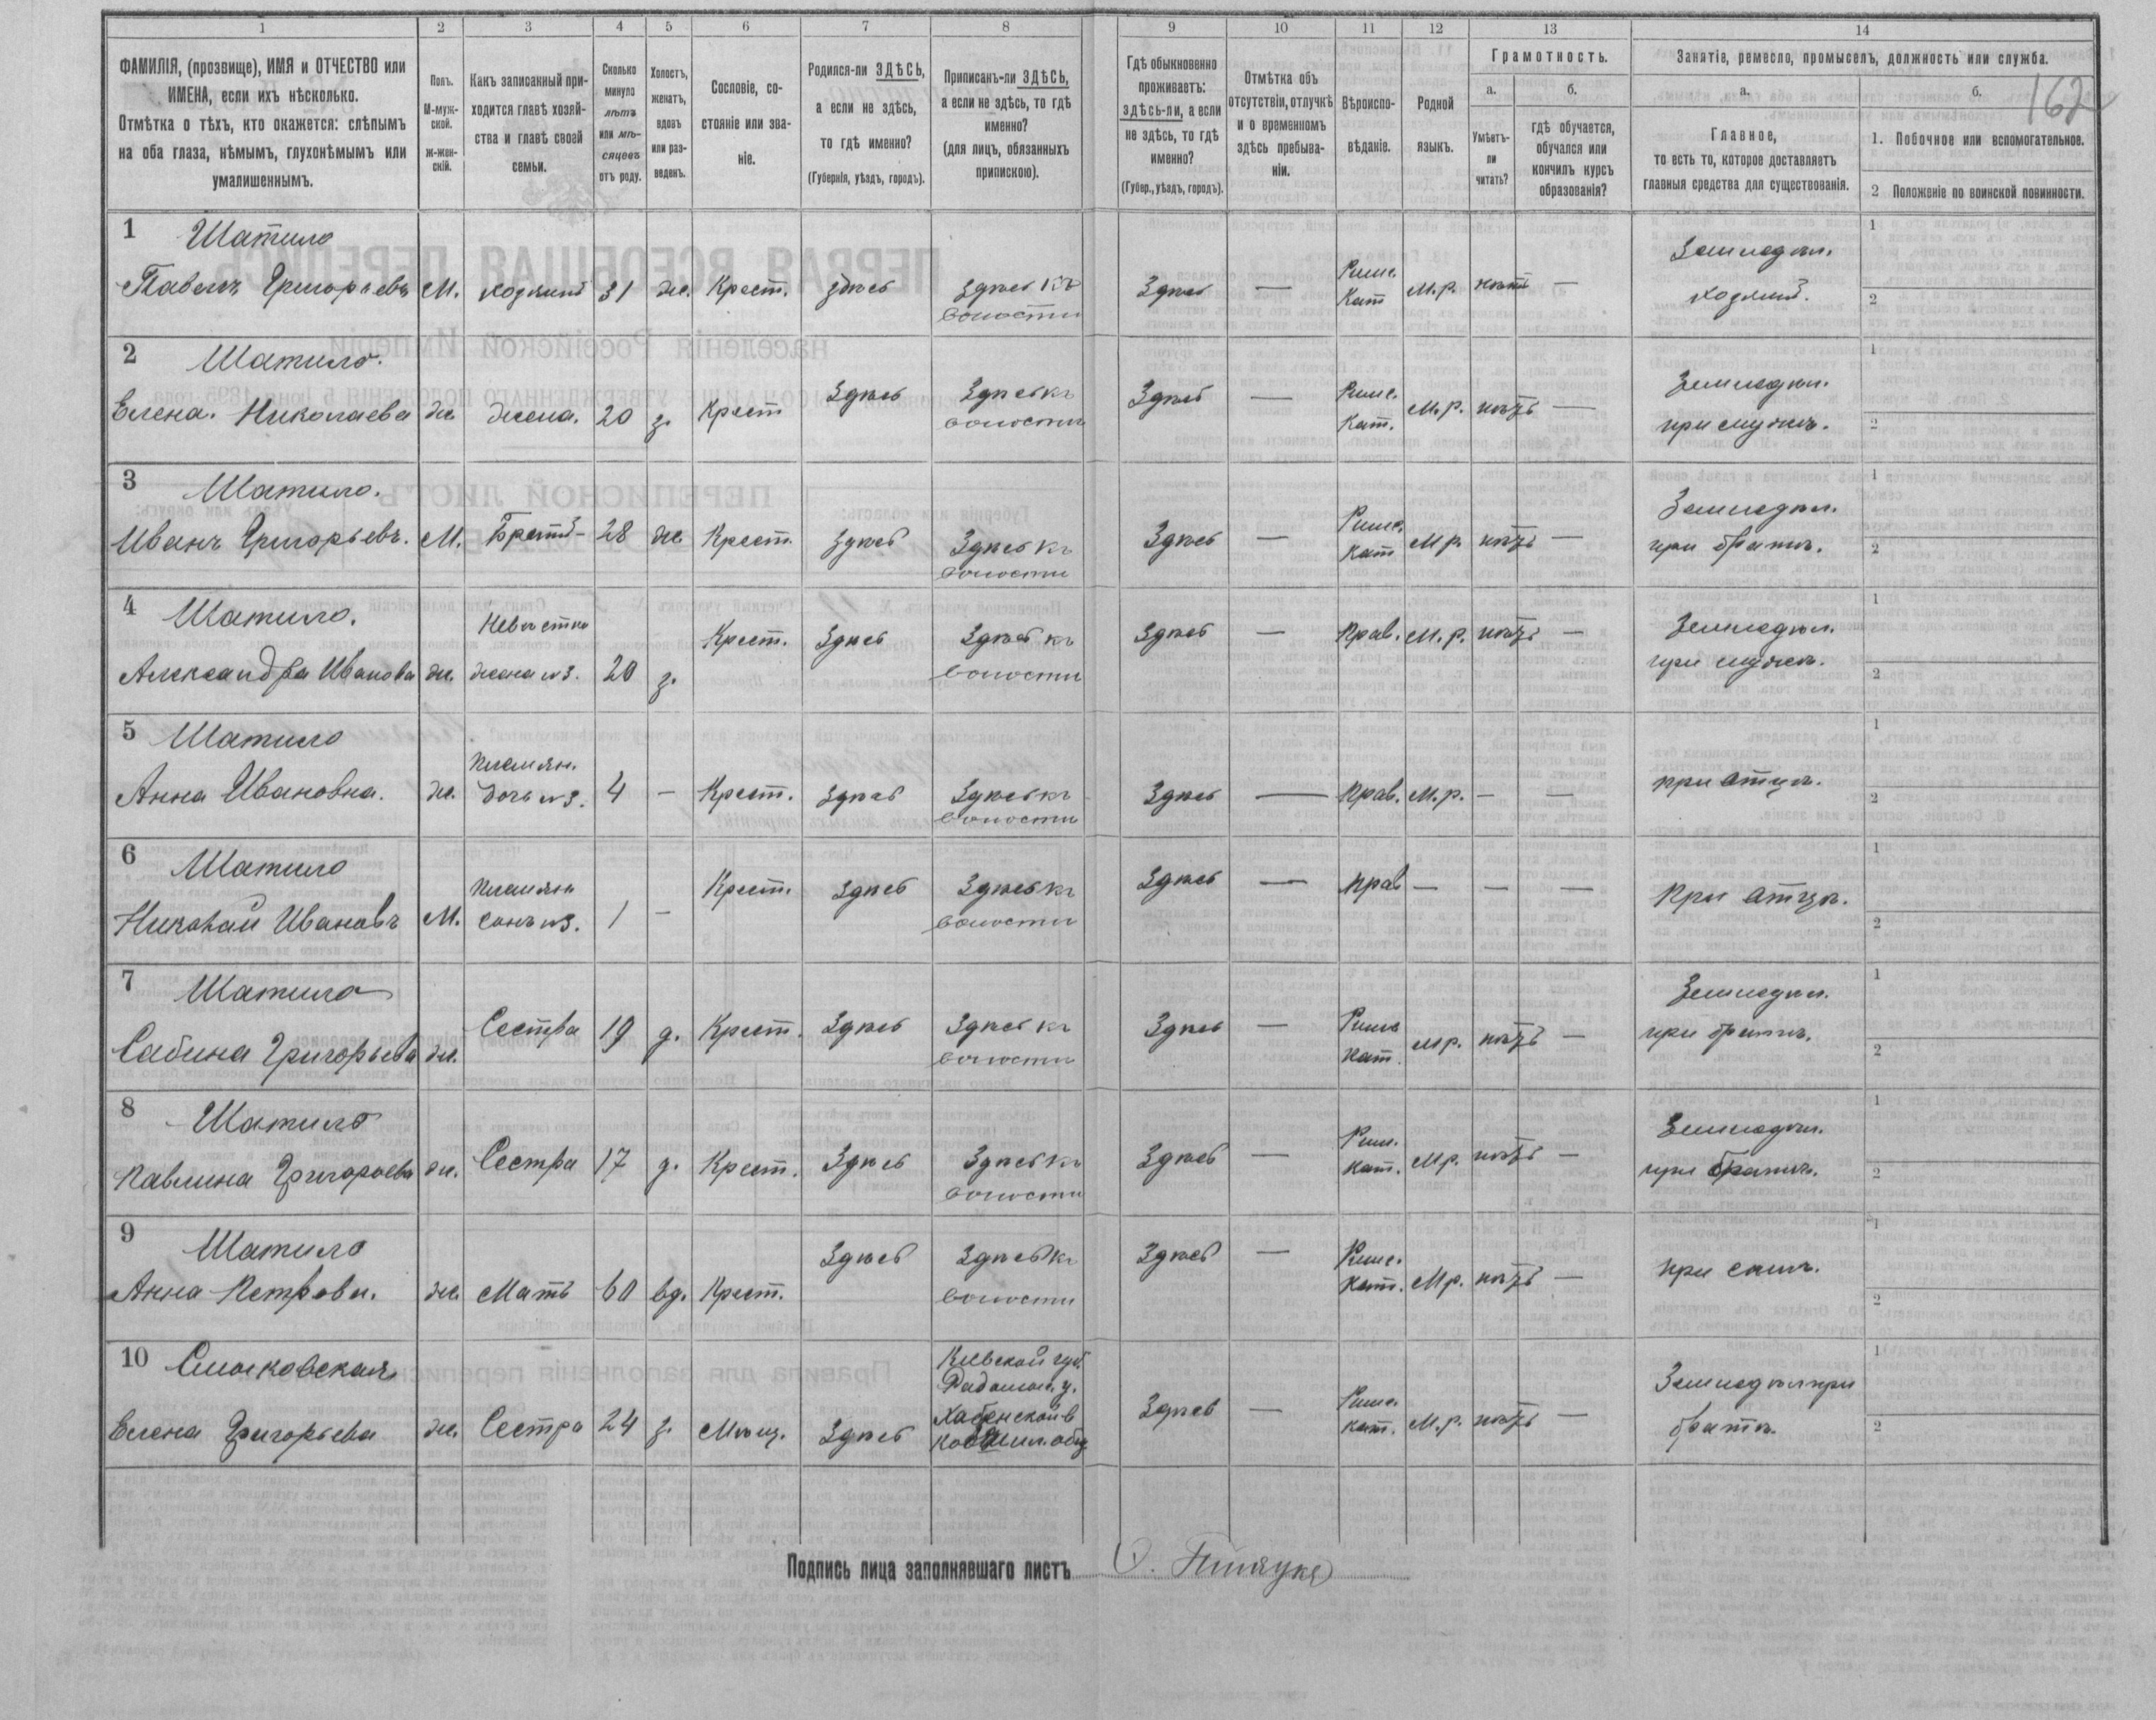 1 2 3 4 5 6 7 8 9 10 11 12 13 14
ФАМИЛІЯ, (прозвище), ИМЯ и ОТЧЕСТВО или
ИМЕНА, если ихъ нѣсколько.
Отмѣтка о тѣхъ, кто окажется: слѣпымъ
на оба глаза, нѣмымъ, глухонѣмымъ или
умалишеннымъ.
Полъ.
М-муж-
ской.
ж-жен-
скій.
Какъ записанный при-
ходится главѣ хозяй-
ства и главѣ своей
семьи.
Сколько
минуло
лѣтъ
или мѣ-
сяцевъ
отъ роду.
Холостъ,
женатъ,
вдовъ
или раз-
веденъ.
Сословіе, со-
стояніе или зва-
ніе.
Родился-ли ЗДѢСЬ,
а если не здѣсь,
то гдѣ именно?
(Губернія, уѣздъ, городъ).
Приписанъ-ли ЗДѢСЬ,
а если не здѣсь, то гдѣ
именно?
(для лицъ, обязанныхъ
припискою).
Гдѣ обыкновенно
проживаетъ:
здѣсь-ли, а если
не здѣсь, то гдѣ
именно?
(Губер., уѣздъ, городъ).
Отмѣтка объ
отсутствіи, отлучкѣ
и о временномъ
здѣсь пребыва-
ніи.
Вѣроиспо-
вѣданіе.
Родной
языкъ.
Грамотность.
а.
Умѣетъ-
ли
читать?
б.
гдѣ обучается,
обучался или
кончилъ курсъ
образованія?
Занятіе, ремесло, промыселъ, должность или служба.
а.
Главное,
то есть то, которое доставляетъ
главныя средства для существованія.
б.
162
1. Побочное или вспомогательное.
2 Положеніе по воинской повинности.
1 Шатило
Павелъ Григорьевъ М. хозяинъ 31 же. Крест. здѣсь здѣсь къ волости Здѣсь — Римс. Кат М.р. нѣтъ — Земледѣл. хозяинъ. 1 2
2 Шатило.
Елена. Николаева же жена. 20 з. Крест Здѣсь Здѣсь къ волости Здѣсь — Римс. Кат. М.р. нѣтъ — Земледѣл. при мужѣ. 1 2
3 Шатило.
Иванъ Григорьевъ. М. Братъ 28 же Крест. Здѣсь Здѣсь къ волости Здѣсь — Римс. Кат М.р. нѣтъ — Земледѣл. при братѣ. 1 2
4 Шатило.
Александра Иванова же. Невѣстка жена №3. 20 з. Крест. Здѣсь Здѣсь къ волости Здѣсь — Прав. М.р. нѣтъ — Земледѣл. при мужѣ. 1 2
5 Шатило
Анна Ивановна. же. Племян. дочь №3. 4 — Крест. Здѣсь Здѣсь къ волости Здѣсь — Прав. М.р. — — при отцѣ. 1 2
6 Шатило
Николай Ивановъ М. Племян сынъ №3. 1 — Крест. Здѣсь Здѣсь къ волости Здѣсь — Прав — — — При отцѣ. 1 2
7 Шатило
Сабина Григорьева же. Сестра 19 д. Крест. Здѣсь Здѣсь къ волости Здѣсь — Римс Кат. М.р. нѣтъ — Земледѣл. при братѣ. 1 2
8 Шатило
Павлина Григорьева же. Сестра 17 д. Крест. Здѣсь Здѣсь къ волости Здѣсь — Рим. Кат. М.р. нѣтъ — Земледѣл. при братѣ. 1 2
9 Шатило
Анна Петрова. же. Мать 60 вд. Крест. Здѣсь Здѣсь къ волости Здѣсь — Римс. Кат. М.р. нѣтъ — При сынѣ. 1 2
10
Елена Григорьева же. Сестра 24 з. Мѣщ. Здѣсь Кіевской губ. Радомыс. у. Хабенской в Здѣсь — Римс. Кат. М.р. нѣтъ — Земледѣл при братѣ. 1 2
Подпись лица заполнявшаго листъ